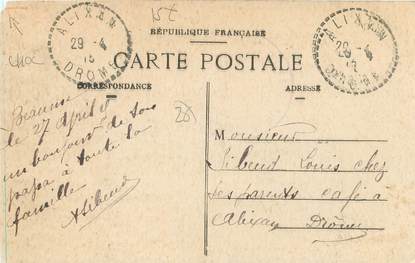 15 €
RÉPUBLIQUE FRANÇAISE
ALIXAN
29 - 4
13
DROME
ALIXAN
29 - 4
13
DROME
CARTE POSTALE
CORRESPONDANCE
ADRESSE
le 27 April
un bonjour de ton
papa à toute la
famille
Monsieur
Louis chez
ses parents café à
Alixan Drôme